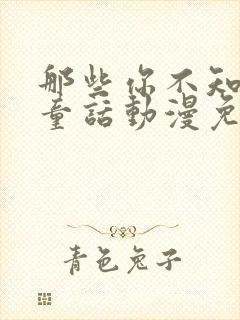 那些你不知
童話動漫免
青色兔子